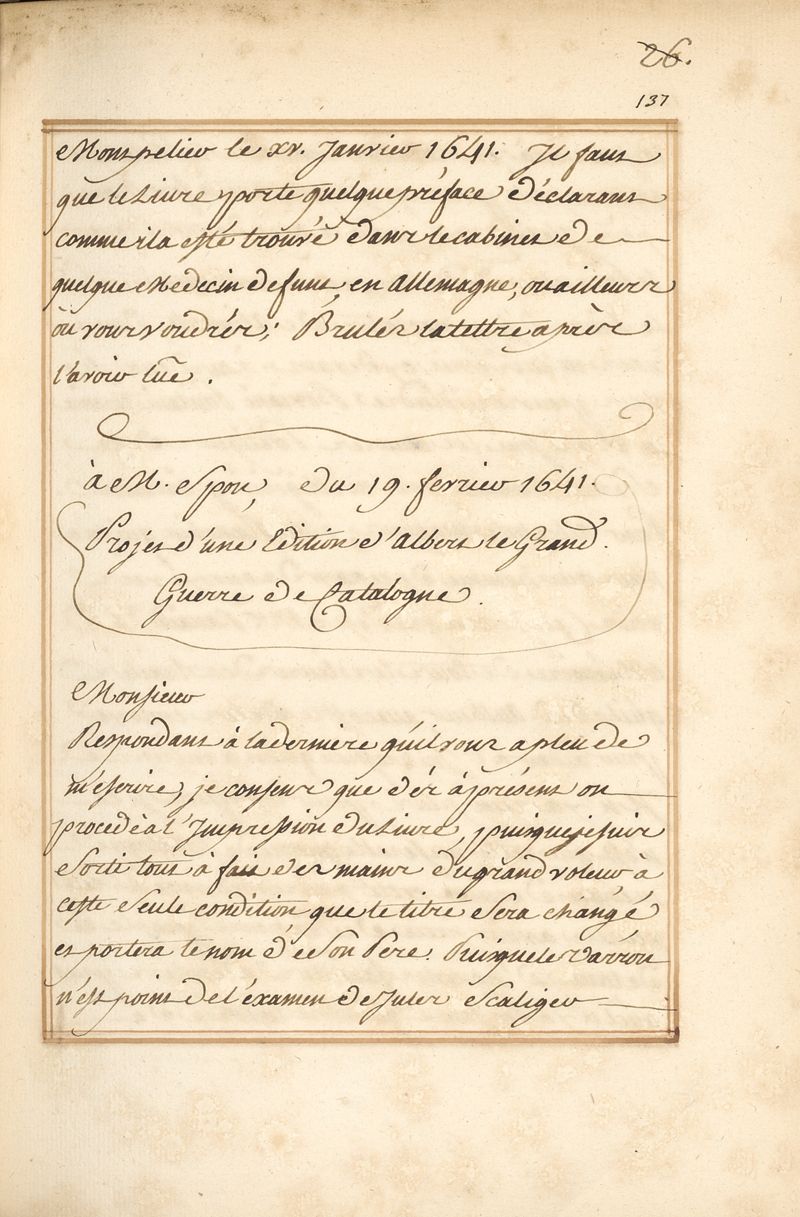 26.
137
Montpelier le xv. Janvier 1641. Il faut
que le Livre porte quelque préface déclarant
comme il a esté trouvé dans le cabinet de
quelque Medecin defunt, en Allemagne, ou ailleurs
où vous voudrés; Brulés la Lettre après
l'avoir lüe.
à M. Spon, du 19. fevrier 1641.
Projet d'une Edition d'Albert le Grand.
Guerre de Catalogne.
Monsieur
Respondant à la derniere qu'il vous a pleu de
m'escrire, je consens que dés à présent on
procedè à l'Impression du Livre, puisque je suis
sorti tout à fait des mains du grand voleur, à
ceste seule condition que le titre sera changé
et portera le nom de son Pere. Puisque le Varron
n'est point de l'éxamen de Jules Scaliger